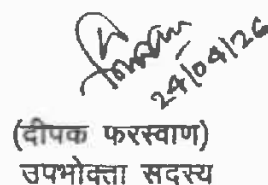 24/04/26
(दीपक फरस्वाण)
उपभोक्ता सदस्य